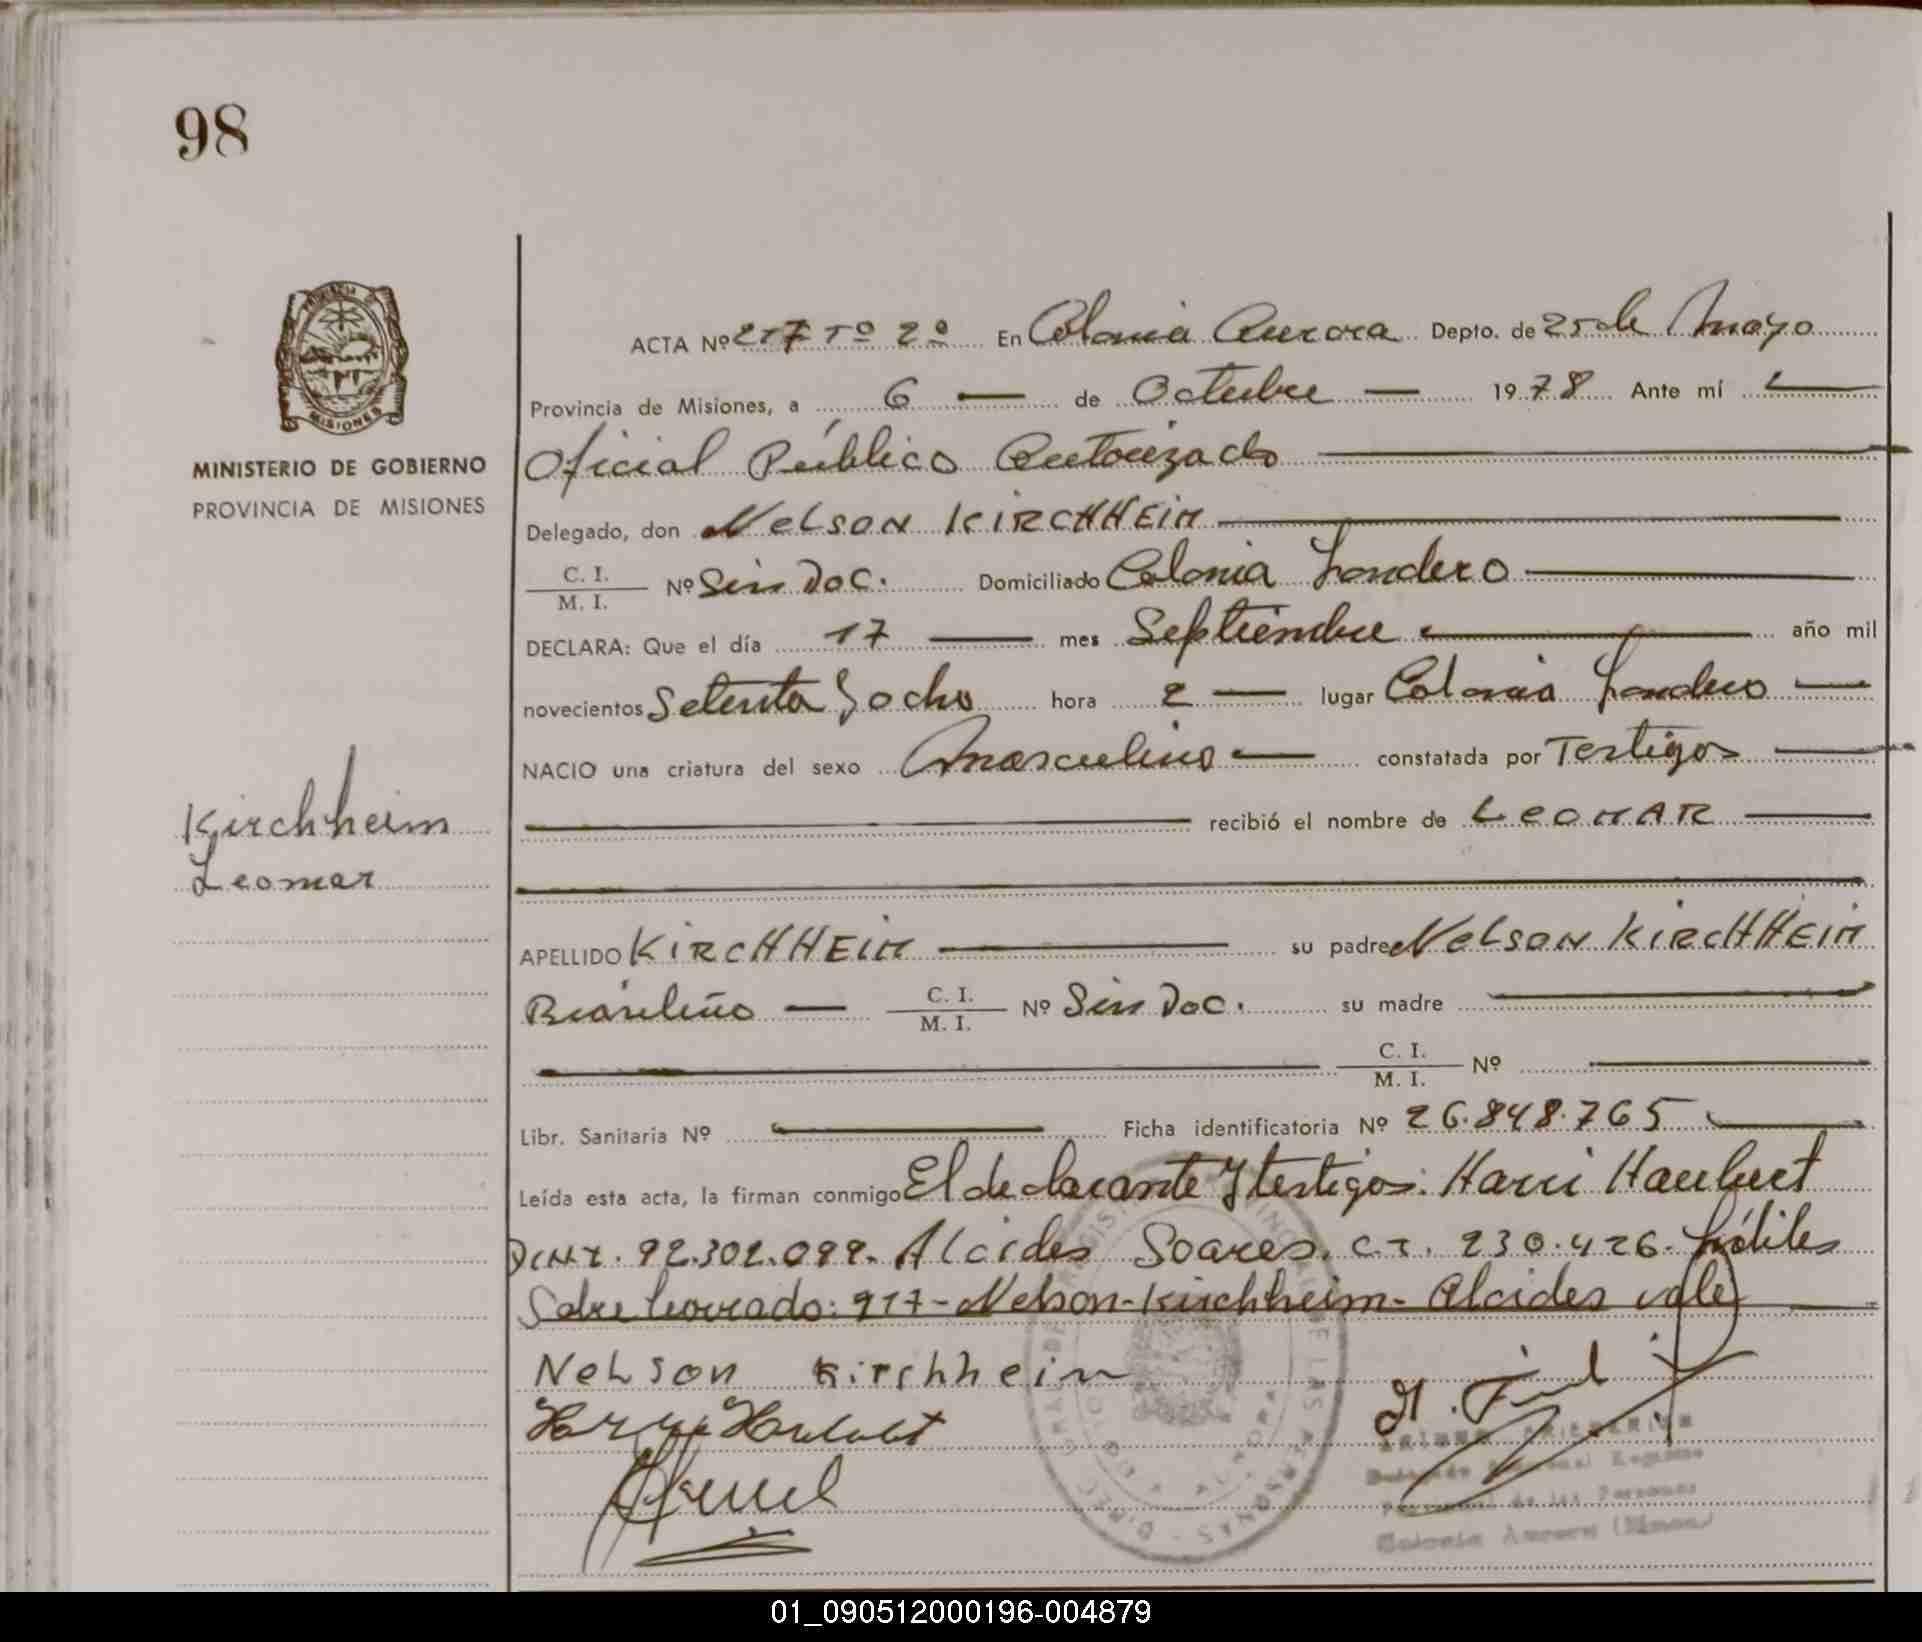 98
PROVINCIA
MISIONES
MINISTERIO DE GOBIERNO
PROVINCIA DE MISIONES
Kirchheim
Leomar
ACTA Nº 217 Tº 2º En Colonia Aurora Depto. de 25 de Mayo
Provincia de Misiones, a 6 — de Octubre — 1978 Ante mí
Oficial Público Autorizado
Delegado, don NELSON KIRCHHEIM
C. I.
M. I.
Nº Sin Doc. Domiciliado Colonia Londero
DECLARA: Que el día 17 — mes Septiembre — año mil
novecientos Setenta y ocho hora 2 — lugar Colonia Londero —
NACIO una criatura del sexo Masculino — constatada por Testigos —
recibió el nombre de LEOMAR —
APELLIDO KIRCHHEIM — su padre NELSON KIRCHHEIM
Brasileño — C. I. Nº Sin Doc. su madre —
M. I.
C. I. Nº
M. I.
Libr. Sanitaria Nº — Ficha identificatoria Nº 26.848.765
Leída esta acta, la firman conmigo El declarante y testigos: Harri Haubert
DNI. 92.302.099. Alcides Soares. C.I. 230.426. hábiles
Sobre borrado: 217 - Nelson - Kirchheim - Alcides vale
Nelson Kirchheim
Colonia Aurora (Misiones)
01_090512000196-004879